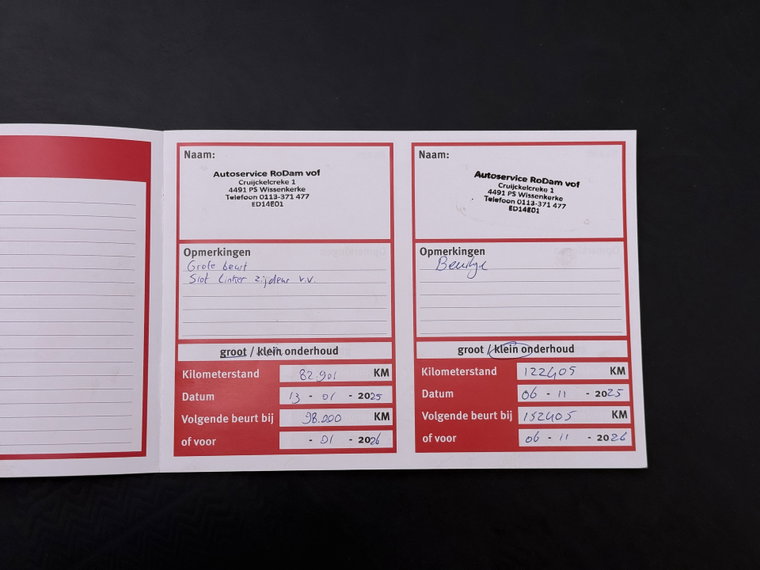 Naam:
Autoservice RoDam vof
Cruijckelcreke 1
4491 PS Wissenkerke
Telefoon 0113-371 477
ED14E01
Opmerkingen
Grote beurt
Slot Linker zijdeur v.v.
groot / klein onderhoud
Kilometerstand 82.901 KM
Datum 13 - 01 - 2025
Volgende beurt bij 98.000 KM
of voor - 01 - 2026
Naam:
Autoservice RoDam vof
Cruijckelcreke 1
4491 PS Wissenkerke
Telefoon 0113-371 477
ED14E01
Opmerkingen
Beurtje
groot / klein onderhoud
Kilometerstand 122405 KM
Datum 06 - 11 - 2025
Volgende beurt bij 152405 KM
of voor 06 - 11 - 2026